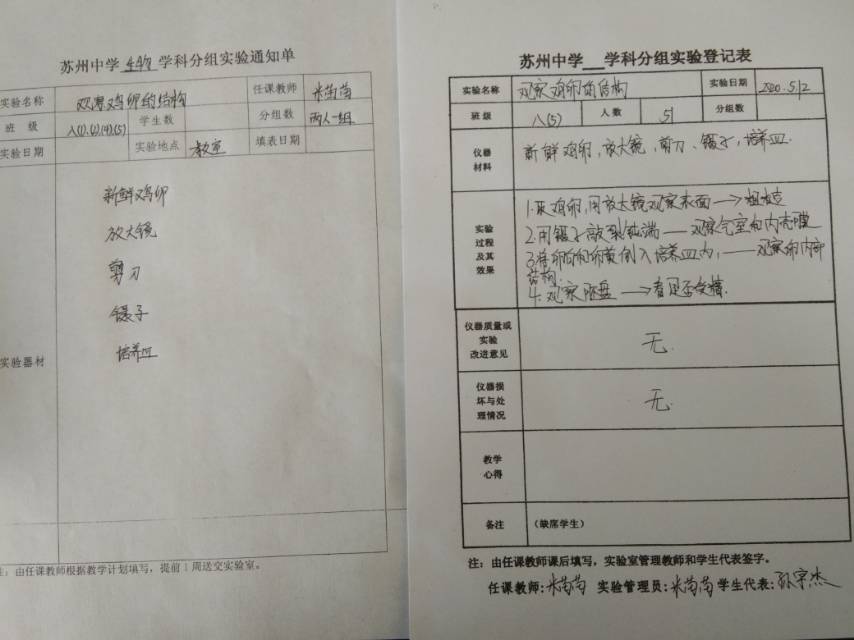 苏州中学 生物 学科分组实验通知单
实验名称 观察鸡卵的结构 任课教师 米苗苗
班 级 八(1).(2)(4)(5) 学生数 分组数 两人一组
实验日期 实验地点 教室 填表日期
实验器材
新鲜鸡卵
放大镜
剪刀
镊子
培养皿
注：由任课教师根据教学计划填写，提前1周送交实验室。
苏州中学___学科分组实验登记表
实验名称 观察鸡卵的结构 实验日期 2020.5.12
班 级 八(5) 人 数 51 分组数
仪器
材料
新鲜鸡卵，放大镜，剪刀、镊子，培养皿.
实验
过程
及其
效果
1.取鸡卵，用放大镜观察表面→粗糙
2.用镊子敲裂钝端—观察气室和内壳膜
3.将卵白和卵黄倒入培养皿内，—观察卵内部
结构.
4.观察胚盘→看是否受精.
仪器质量或
实验
改进意见
无.
仪器损
坏与处
理情况
无.
教学
心得
备注 (缺席学生)
注：由任课教师课后填写，实验室管理教师和学生代表签字。
任课教师:米苗苗 实验管理员:米苗苗 学生代表:孙宇杰